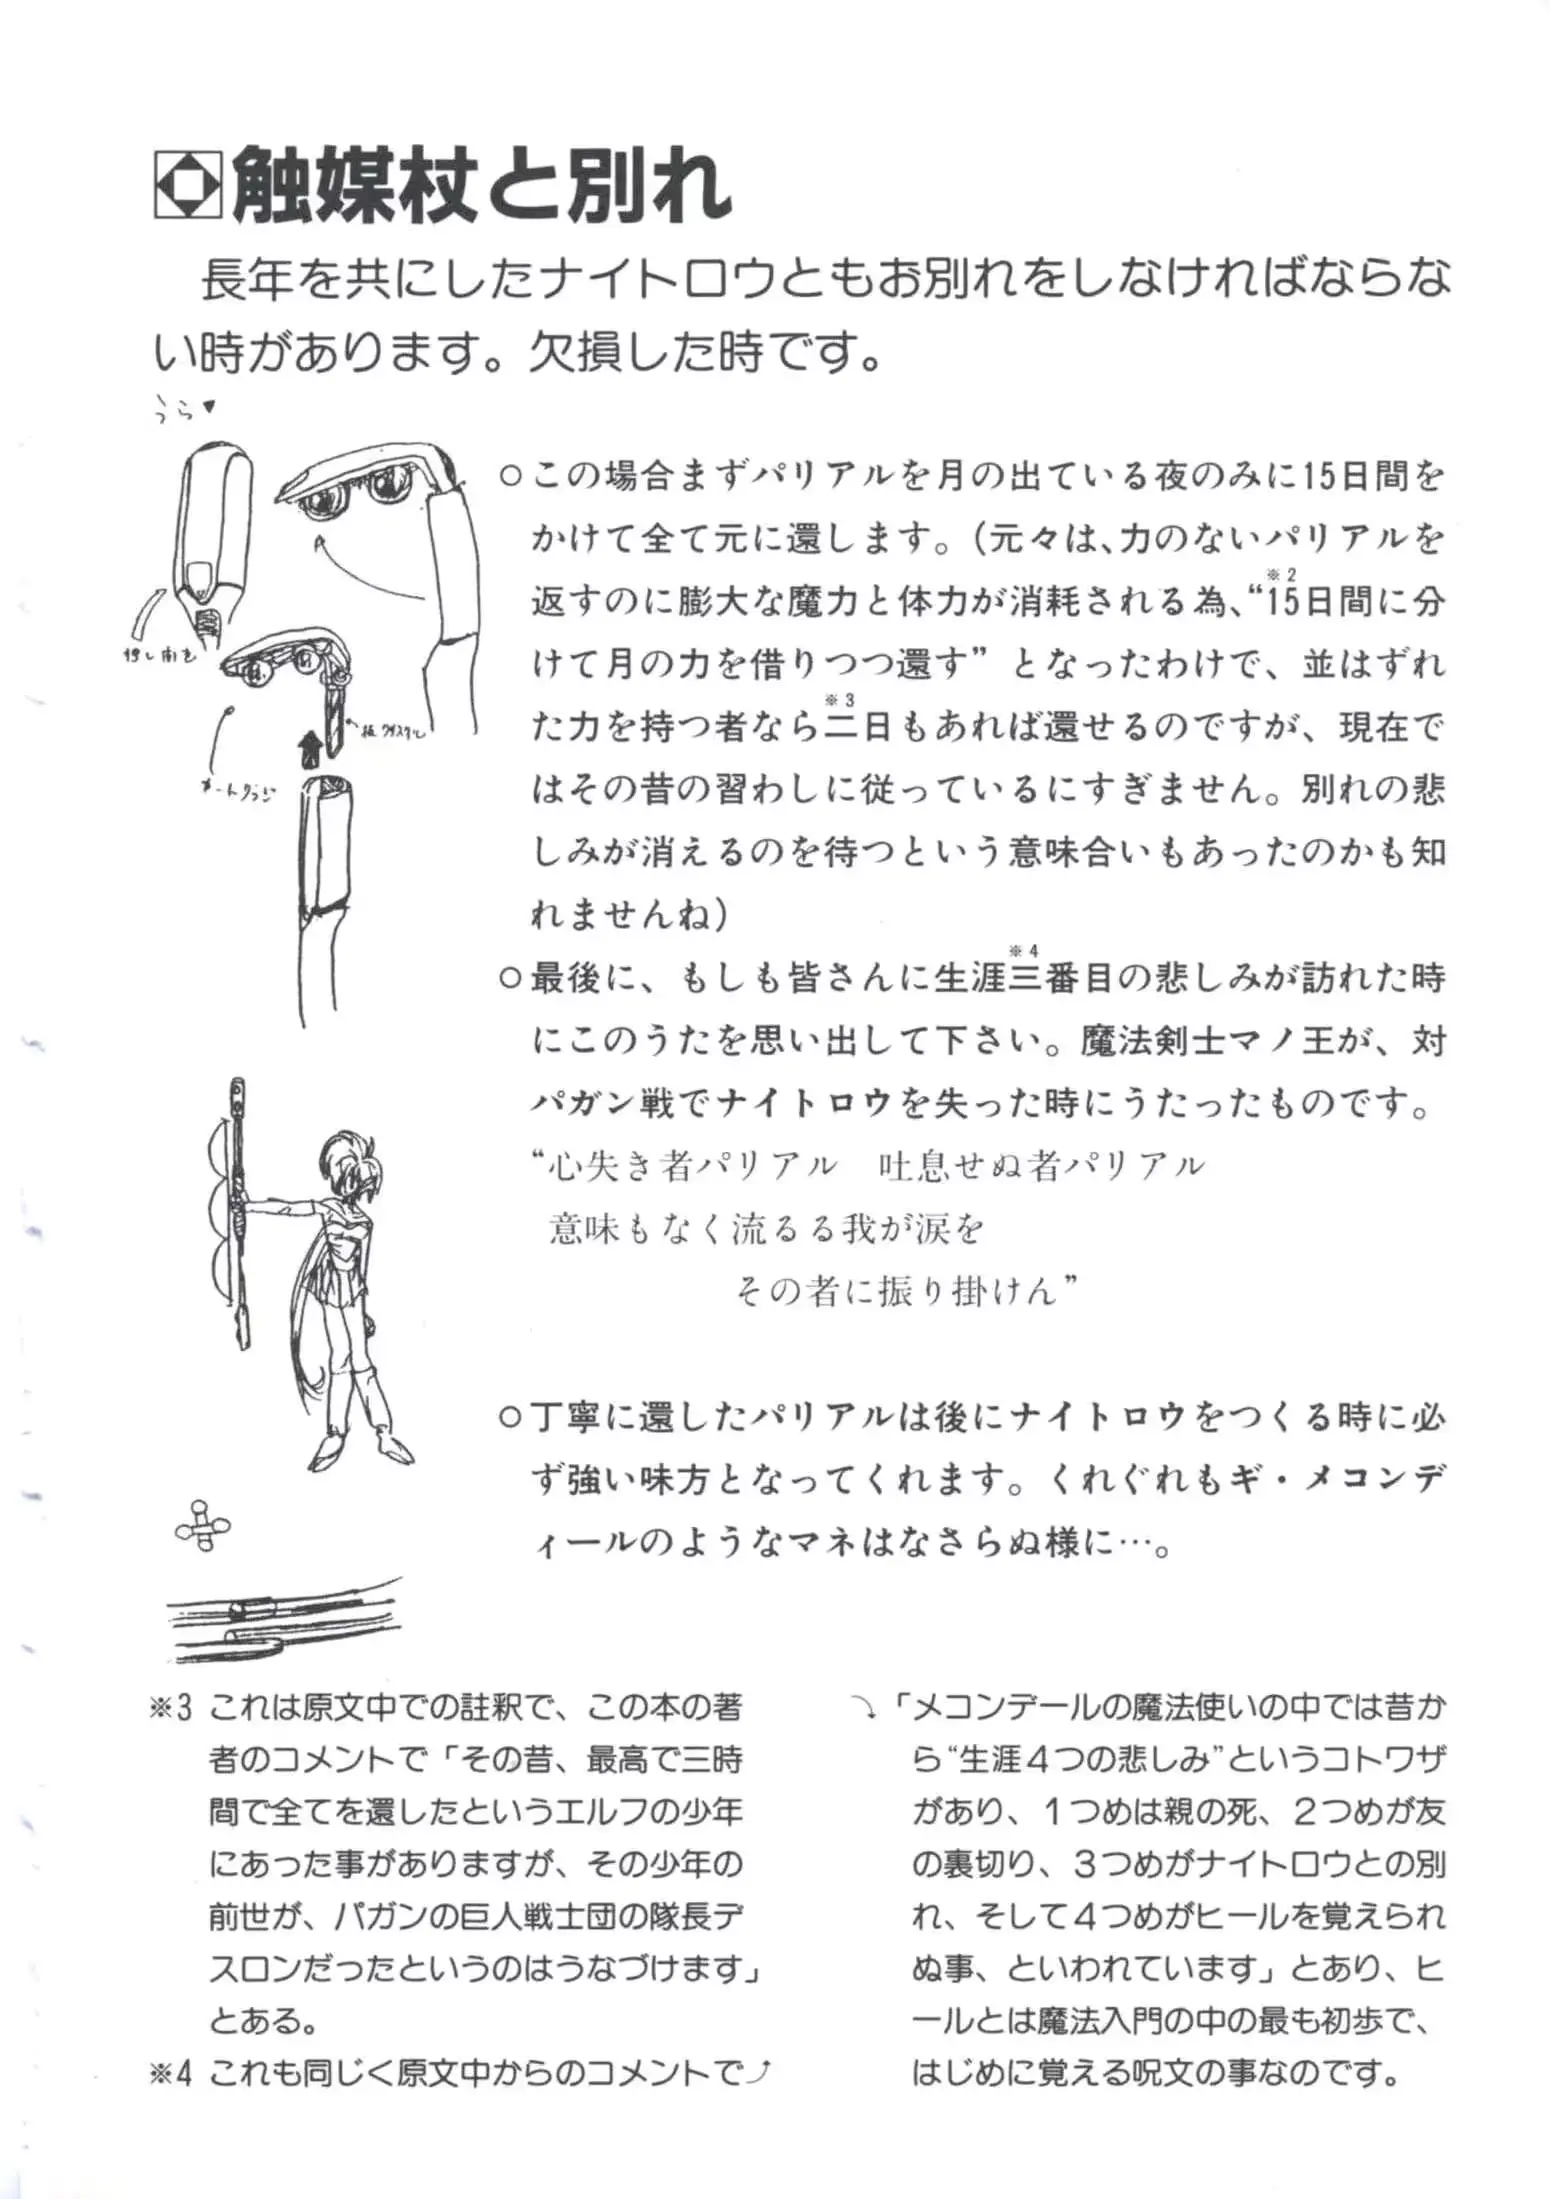 触媒杖と別れ
長年を共にしたナイトロウともお別れをしなければならな
い時があります。欠損した時です。
うら▼
○この場合まずパリアルを月の出ている夜のみに15日間を
かけて全て元に還します。(元々は、力のないパリアルを
返すのに膨大な魔力と体力が消耗される為、“15日間に分
※2
けて月の力を借りつつ還す”となったわけで、並はずれ
※3
た力を持つ者なら二日もあれば還せるのですが、現在で
はその昔の習わしに従っているにすぎません。別れの悲
しみが消えるのを待つという意味合いもあったのかも知
れませんね)
※4
○最後に、もしも皆さんに生涯三番目の悲しみが訪れた時
にこのうたを思い出して下さい。魔法剣士マノ王が、対
パガン戦でナイトロウを失った時にうたったものです。
“心失き者パリアル　吐息せぬ者パリアル
意味もなく流るる我が涙を
その者に振り掛けん”
○丁寧に還したパリアルは後にナイトロウをつくる時に必
ず強い味方となってくれます。くれぐれもギ・メコンデ
ィールのようなマネはなさらぬ様に…。
※3 これは原文中での註釈で、この本の著
者のコメントで「その昔、最高で三時
間で全てを還したというエルフの少年
にあった事がありますが、その少年の
前世が、パガンの巨人戦士団の隊長デ
スロンだったというのはうなづけます」
とある。
※4 これも同じく原文中からのコメントで
「メコンデールの魔法使いの中では昔か
ら“生涯4つの悲しみ”というコトワザ
があり、1つめは親の死、2つめが友
の裏切り、3つめがナイトロウとの別
れ、そして4つめがヒールを覚えられ
ぬ事、といわれています」とあり、ヒ
ールとは魔法入門の中の最も初歩で、
はじめに覚える呪文の事なのです。